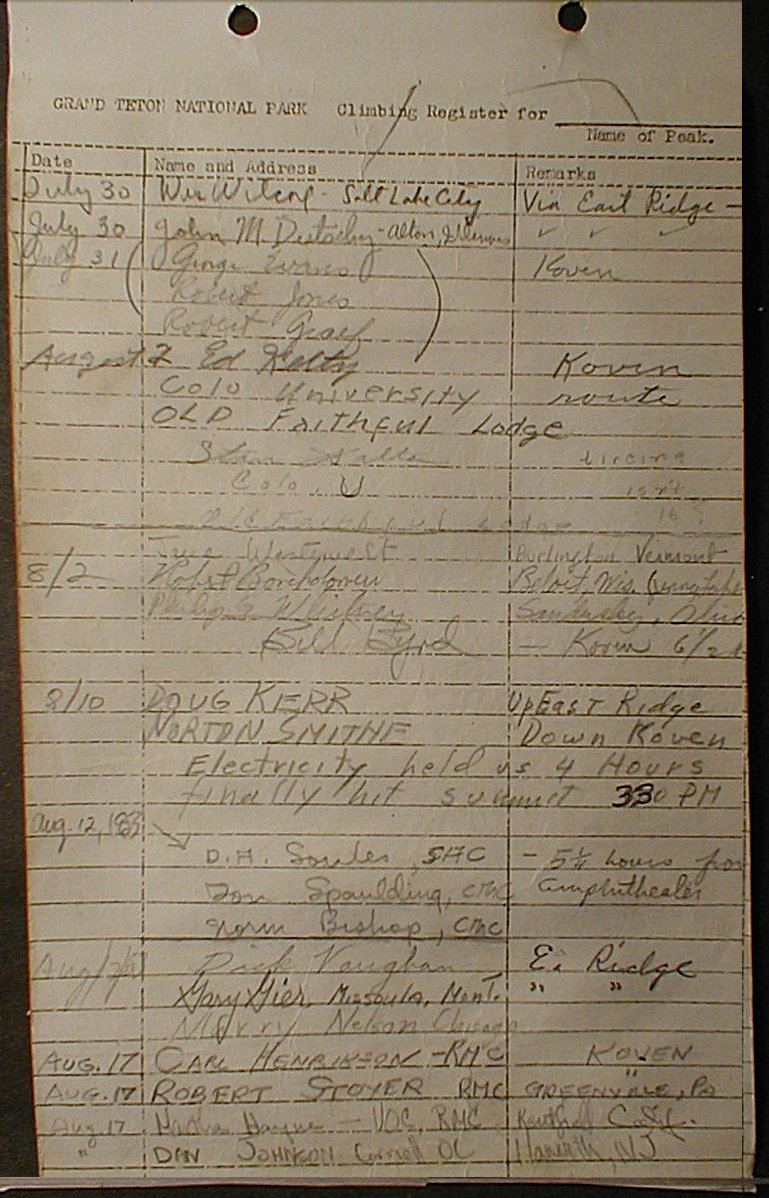 GRAND TETON NATIONAL PARK Climbing Register for
Name of Peak.
Date Name and Address Remarks
July 30 Wes - Salt Lake City Via East Ridge -
July 30 John M. - Alton, Illinois ✓ ✓ ✓
July 31 ( George Evans ) Koven
Robert Jones
Robert Graef
August 2 Ed Koven
Colo University route
OLD FAithful Lodge
Stan
Colo. U isn't
it ?
Burlington Vermont
8/2 Beloit, Wis.
Philip S. Whitney Sandusky, Ohio
Bill Byrd — Koven 6 1/2
8/10 DOUG KERR Up East Ridge
NORTON SMITHE Down Koven
Electricity held us 4 Hours
finally hit summit 330 PM
Aug. 12,
D.H. , - 5 1/4 hours from
Don Spaulding, CMC Amphitheater
Norm Bishop, CMC
Dick Vaughan E. Ridge
Gary Gier, Missoula, Mont. " "
Nelson Chicago
AUG. 17 CARL HENRIKSON - RMC KOVEN
AUG. 17 ROBERT STOYER RMC GREENVILLE, Pa
Aug 17 — VOC, RMC Calif.
" DAN JOHNSON Cornell OC , NJ